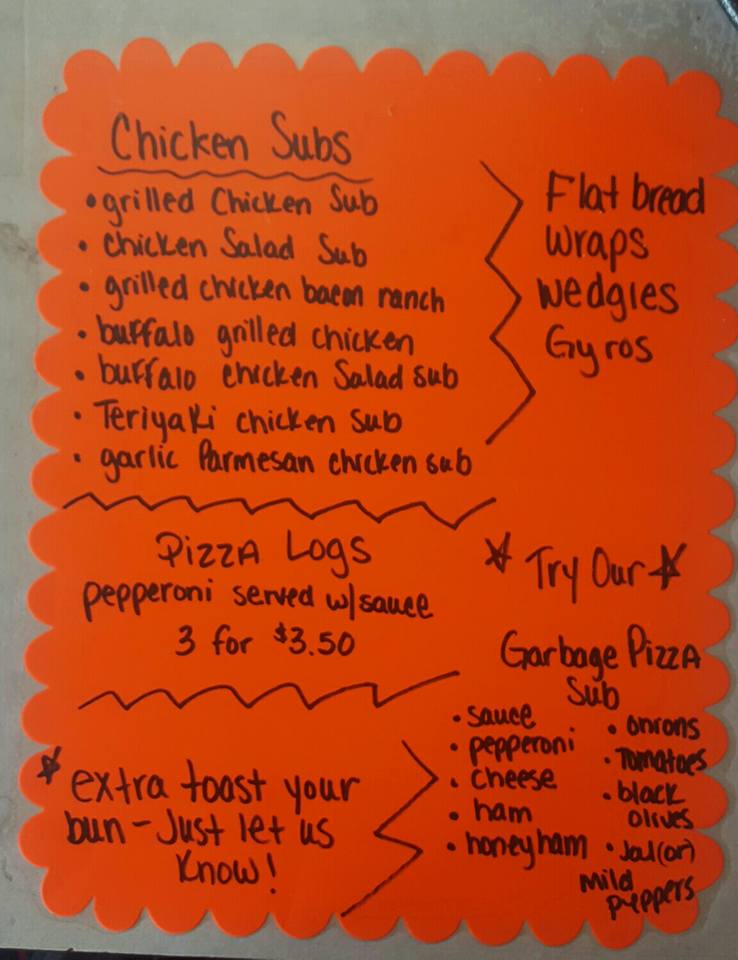 Chicken Subs
• grilled Chicken Sub
• chicken Salad Sub
• grilled chicken bacon ranch
• buffalo grilled chicken
• buffalo chicken Salad sub
• Teriyaki chicken sub
• garlic Parmesan chicken sub
Flat bread
wraps
wedgies
Gyros
Pizza Logs
pepperoni served w/sauce
3 for $3.50
extra toast your
bun - Just let us
Know!
Try Our
Garbage Pizza
Sub
• sauce
• pepperoni
• cheese
• ham
• honey ham
• onions
• Tomatoes
• black
olives
• Jal(or)
mild
peppers